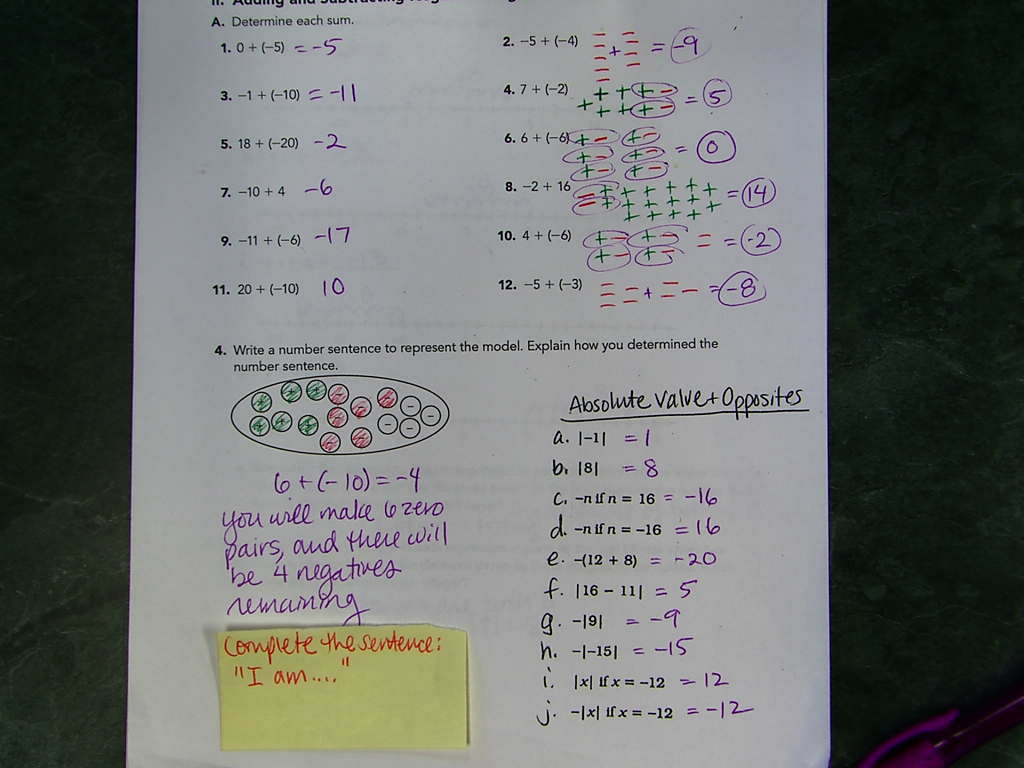 II. Adding and Subtracting
A. Determine each sum.
1. 0 + (-5) = -5
2. -5 + (-4) + = -9
3. -1 + (-10) = -11
4. 7 + (-2) = 5
5. 18 + (-20) -2
6. 6 + (-6) = 0
7. -10 + 4 -6
8. -2 + 16 = 14
9. -11 + (-6) -17
10. 4 + (-6) = -2
11. 20 + (-10) 10
12. -5 + (-3) + = -8
4. Write a number sentence to represent the model. Explain how you determined the
number sentence.
6 + (-10) = -4
you will make 6 zero
pairs, and there will
be 4 negatives
remaining
Complete the sentence:
"I am...."
Absolute Value + Opposites
a. |-1| = 1
b. |8| = 8
c. -n if n = 16 = -16
d. -n if n = -16 = 16
e. -(12 + 8) = -20
f. |16 - 11| = 5
g. -|9| = -9
h. -|-15| = -15
i. |x| if x = -12 = 12
j. -|x| if x = -12 = -12